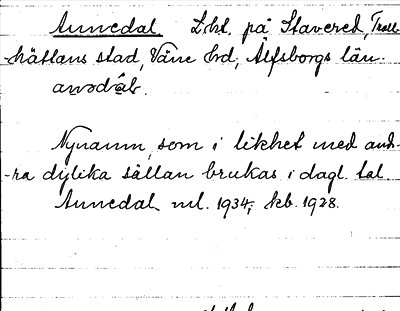 Annedal. Lht. på Stavered, Troll-
hättans stad, Väne hd, Älfsborgs län.
Nynamn, som i likhet med and-
-ra dylika sällan brukas i dagl. tal.
Annedal ml. 1934; kb. 1928.